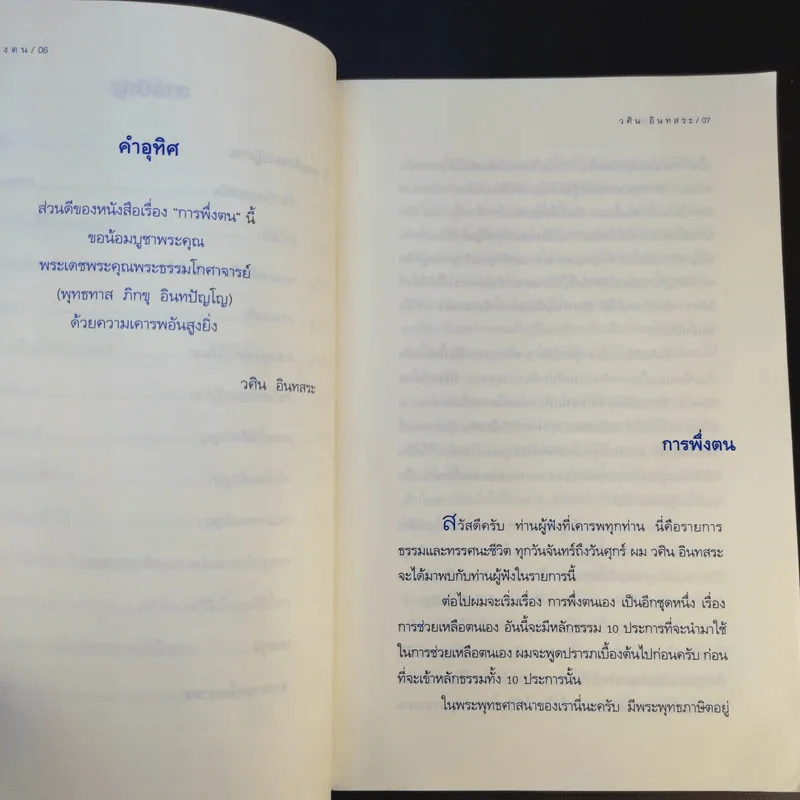 งตน/06
คำอุทิศ
ส่วนดีของหนังสือเรื่อง "การพึ่งตน" นี้
ขอน้อมบูชาพระคุณ
พระเดชพระคุณพระธรรมโกศาจารย์
(พุทธทาส ภิกขุ อินทปัญโญ)
ด้วยความเคารพอันสูงยิ่ง
วศิน อินทสระ
วศิน อินทสระ/07
การพึ่งตน
สวัสดีครับ ท่านผู้ฟังที่เคารพทุกท่าน นี่คือรายการ
ธรรมและทรรศนะชีวิต ทุกวันจันทร์ถึงวันศุกร์ ผม วศิน อินทสระ
จะได้มาพบกับท่านผู้ฟังในรายการนี้
ต่อไปผมจะเริ่มเรื่อง การพึ่งตนเอง เป็นอีกชุดหนึ่ง เรื่อง
การช่วยเหลือตนเอง อันนี้จะมีหลักธรรม 10 ประการที่จะนำมาใช้
ในการช่วยเหลือตนเอง ผมจะพูดปรารภเบื้องต้นไปก่อนครับ ก่อน
ที่จะเข้าหลักธรรมทั้ง 10 ประการนั้น
ในพระพุทธศาสนาของเรานี่นะครับ มีพระพุทธภาษิตอยู่